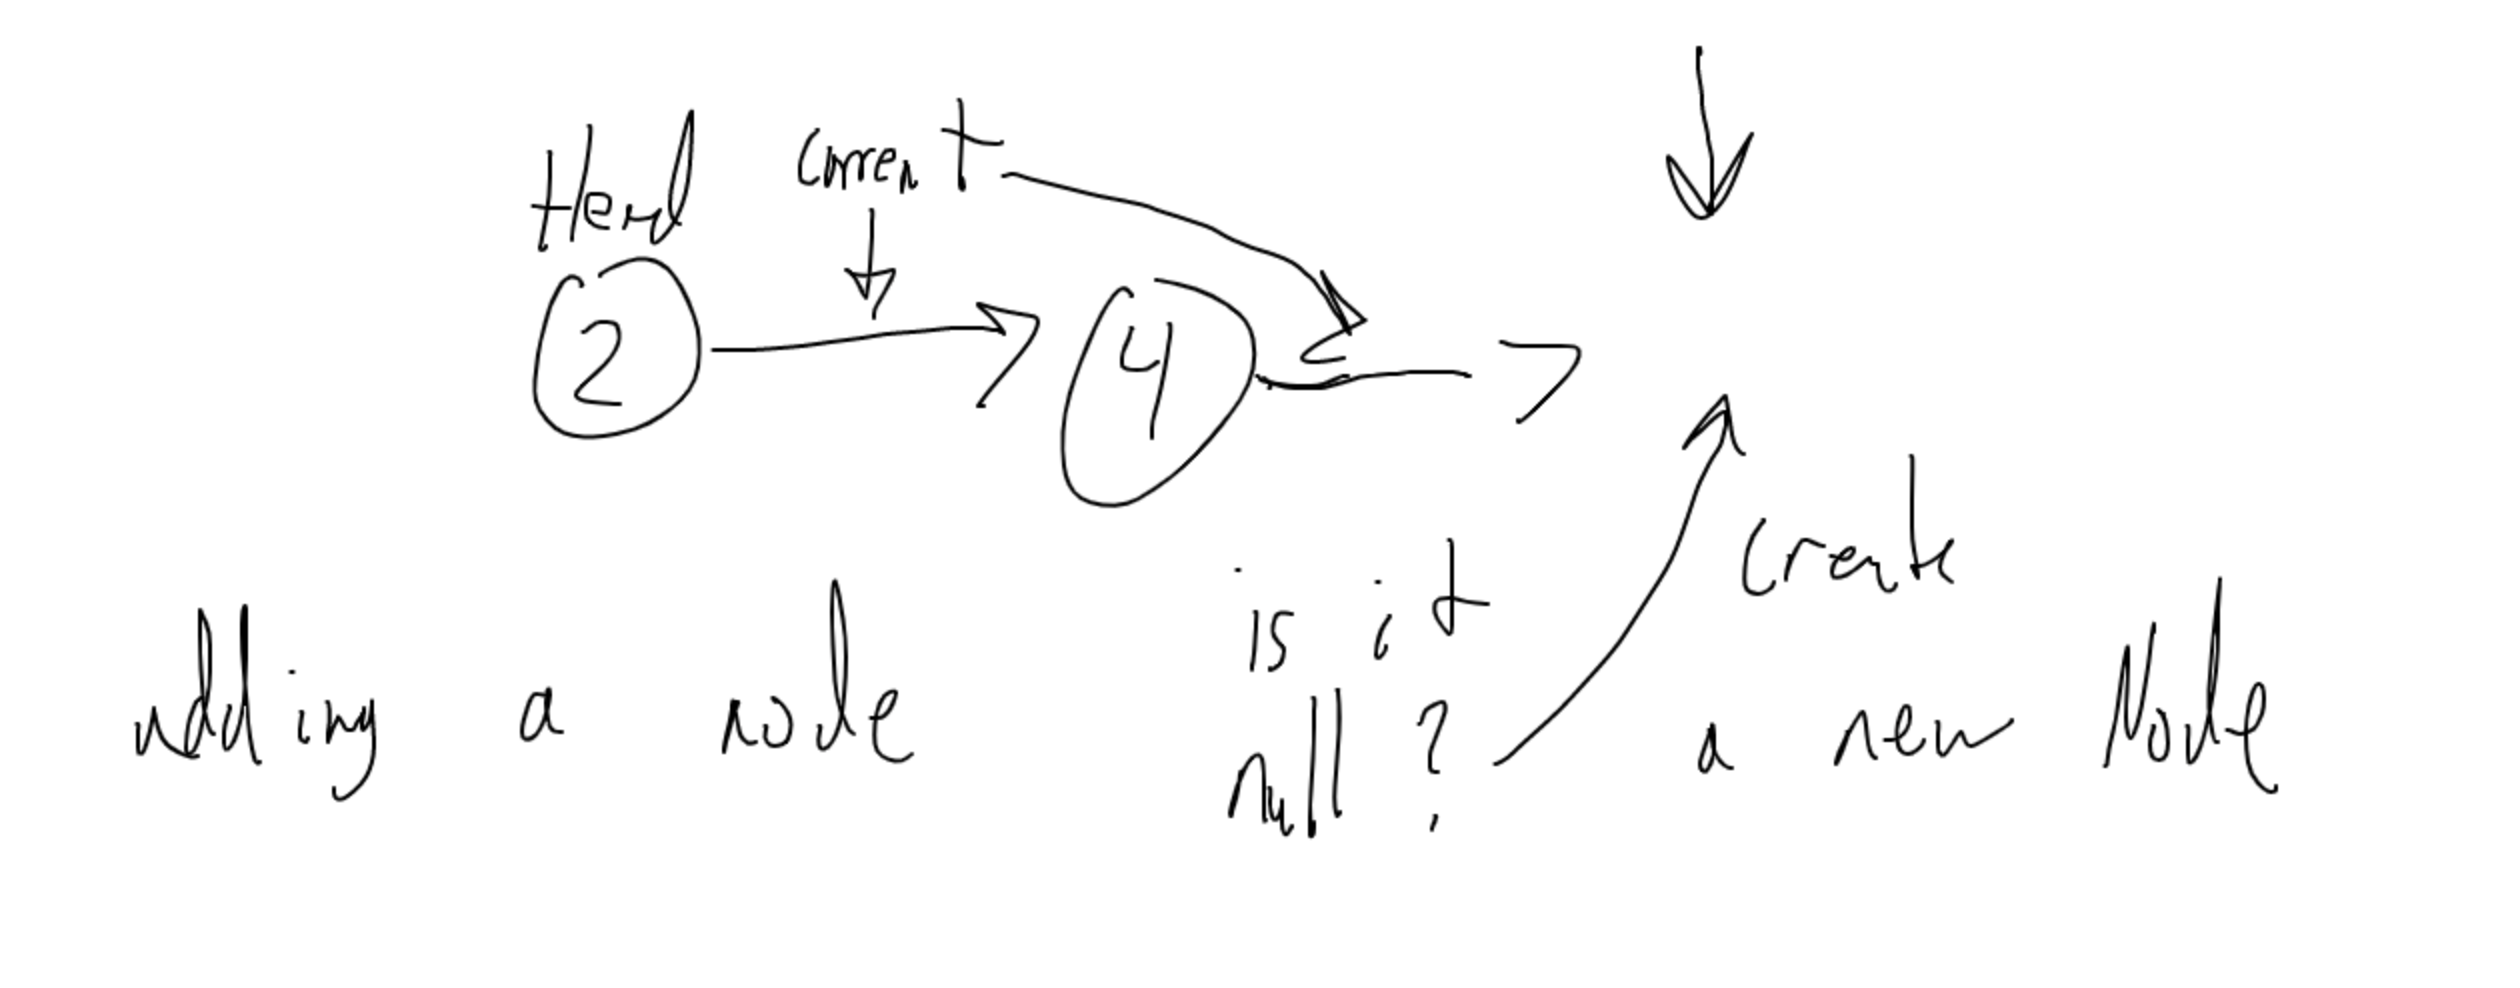 Head current
2 4
adding a node
is it
null?
create
a new Node